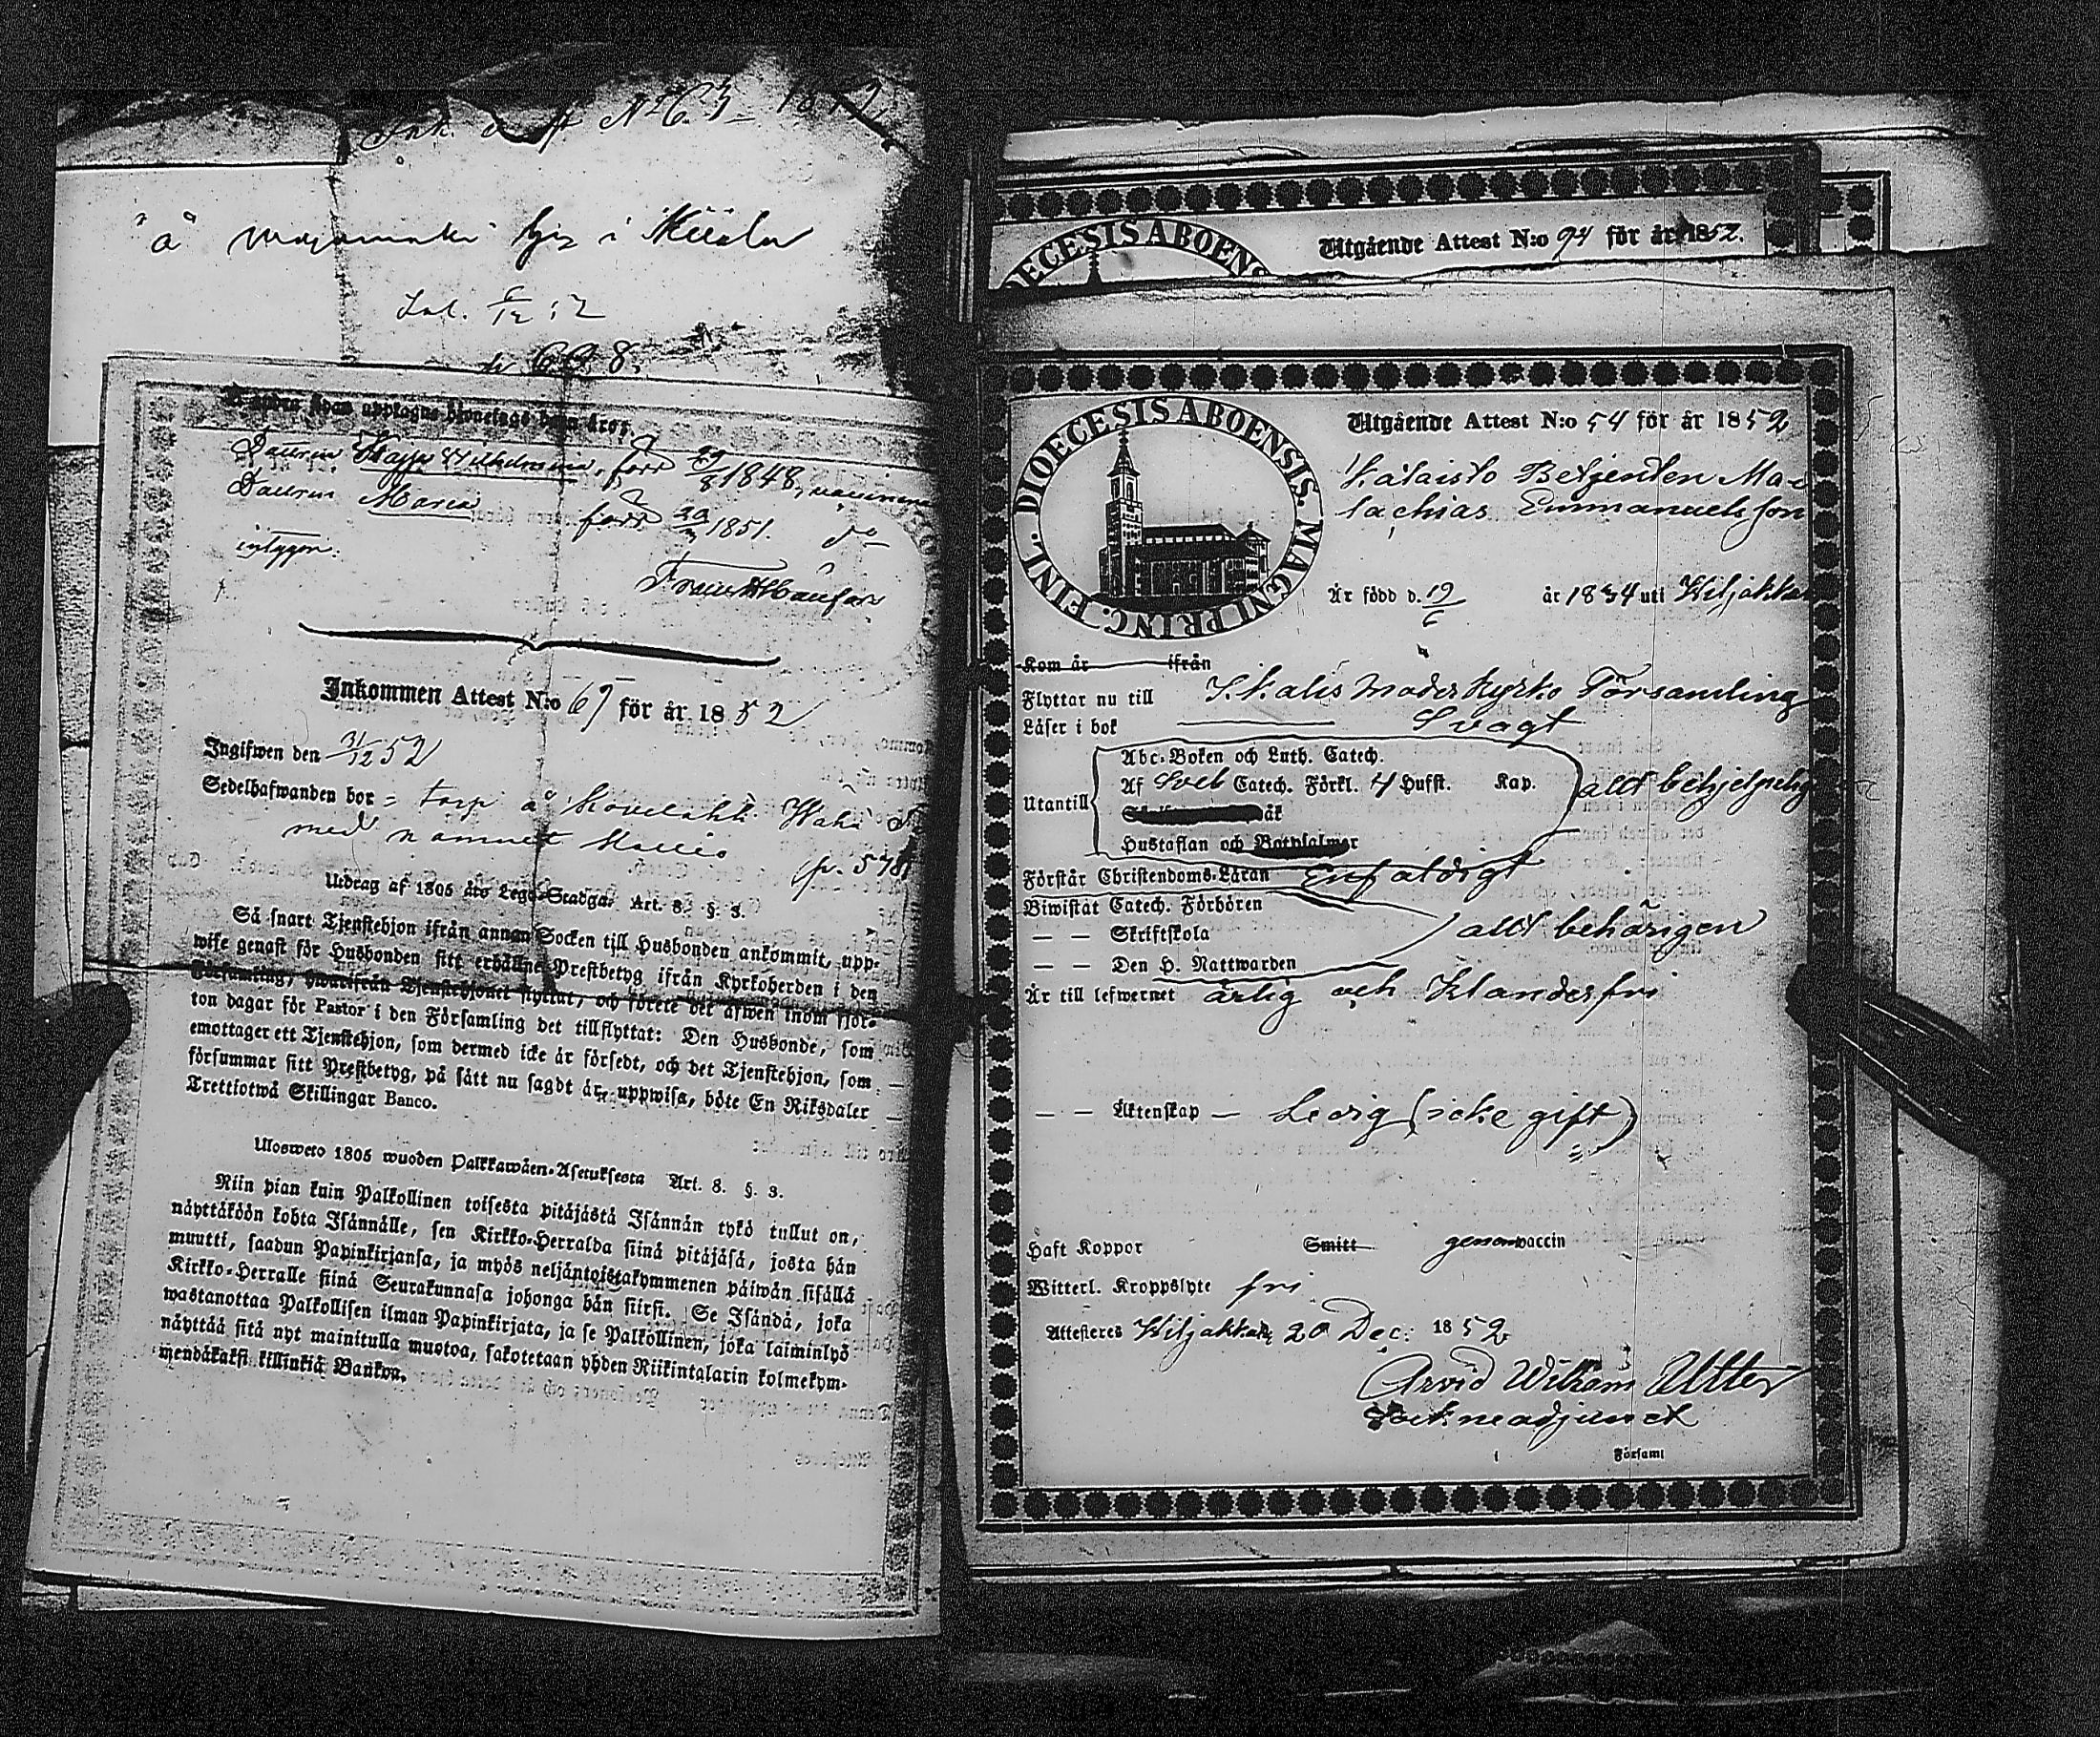 Ink. attest No 63 1852
"å" i
Ink. 5/12 52
No 628.
upptagne åro:
Dottren Kajsa Wilhelmina, född 29/8 1848, vaccinerad
Dottren Maria född 30/ 1851. do
intygar.
Inkommen Attest N:o 67 för år 1852
Ingifwen den 31/12 52
Sedelhafwanden bor = torp å
med namnet p. 578
Utdrag af 1805 års Lego-Stadga. Art. 8. §. 3.
Så snart Tjenstehjon ifrån annan Socken till Husbonden ankommit, upp-
wise genast för Husbonden sitt erhållne Prestbetyg ifrån Kyrkoherden i den
Församling, hwarifrån Tjenstehjonet flyttat, och förete det äfwen inom fjor-
ton dagar för Pastor i den Församling det tillflyttat: Den Husbonde, som
emottager ett Tjenstehjon, som dermed icke är försedt, och det Tjenstehjon, som
försummar sitt Prestbetyg, på sätt nu sagdt är, uppwisa, böte En Riksdaler
Trettiotwå Skillingar Banco.
Ulosweto 1805 wuoden Palkkawäen-Asetuksesta Art. 8. §. 3.
Niin pian kuin Palkollinen toisesta pitäjästä Isännän tykö tullut on,
näyttäköön kohta Isännälle, sen Kirkko-Herralda siinä pitäjäsä, josta hän
muutti, saadun Papinkirjansa, ja myös neljäntoistakymmenen päiwän sisällä
Kirkko-Herralle siinä Seurakunnasa johonga hän siirsi. Se Isändä, joka
wastanottaa Palkollisen ilman Papinkirjata, ja se Palkollinen, joka laiminlyö
näyttää sitä nyt mainitulla muotoa, sakotetaan yhden Riikintalarin kolmekym-
mendäkaksi killinkiä Bankoa.
DIOECESIS ABOENS
Utgående Attest N:o 94 för år 1852.
DIOECESIS ABOENSIS. MAGNI PRINC. FINL.
Utgående Attest N:o 54 för år 1852
Kataisto Betjenten Ma-
lachias Emmanuelsson
Är född d. 19/6 år 1834 uti Kiljakkala
Kom år ifrån
Flyttar nu till Ikalis Moderkyrko Församling
Läser i bok Svagt
Utantill
Abc-Boken och Luth. Catech.
Af Sveb Catech. Förkl. 4 Hufst. Kap. allt behjelpelig
Hustaflan och Botpsalmer
Förstår Christendoms-Läran Enfaldigt
Biwistat Catech. Förhören
— — Skriftskola allt behörigen
— — Den H. Nattwarden
Är till lefwernet ärlig och Klanderfri
— — Äktenskap — Ledig (icke gift)
Haft Koppor Smitt genom vaccin
Witterl. Kroppslyte fri
Attesteres Kiljakkala 20 Dec: 1852
Arvid Wilhelm Utter
Sockneadjunct
i Församl